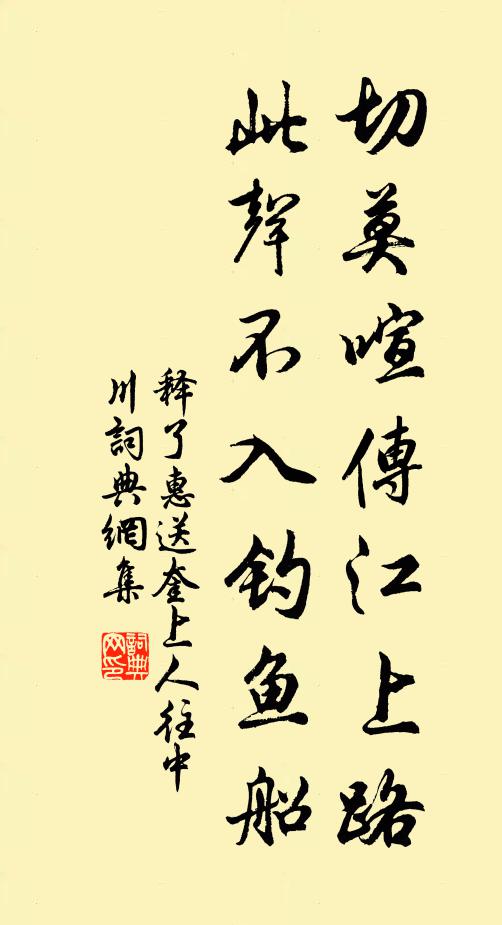 切莫喧傳江上路
此聲不入钓鱼船
释了惠送奎上人往中
川詞典網集
詞典网印